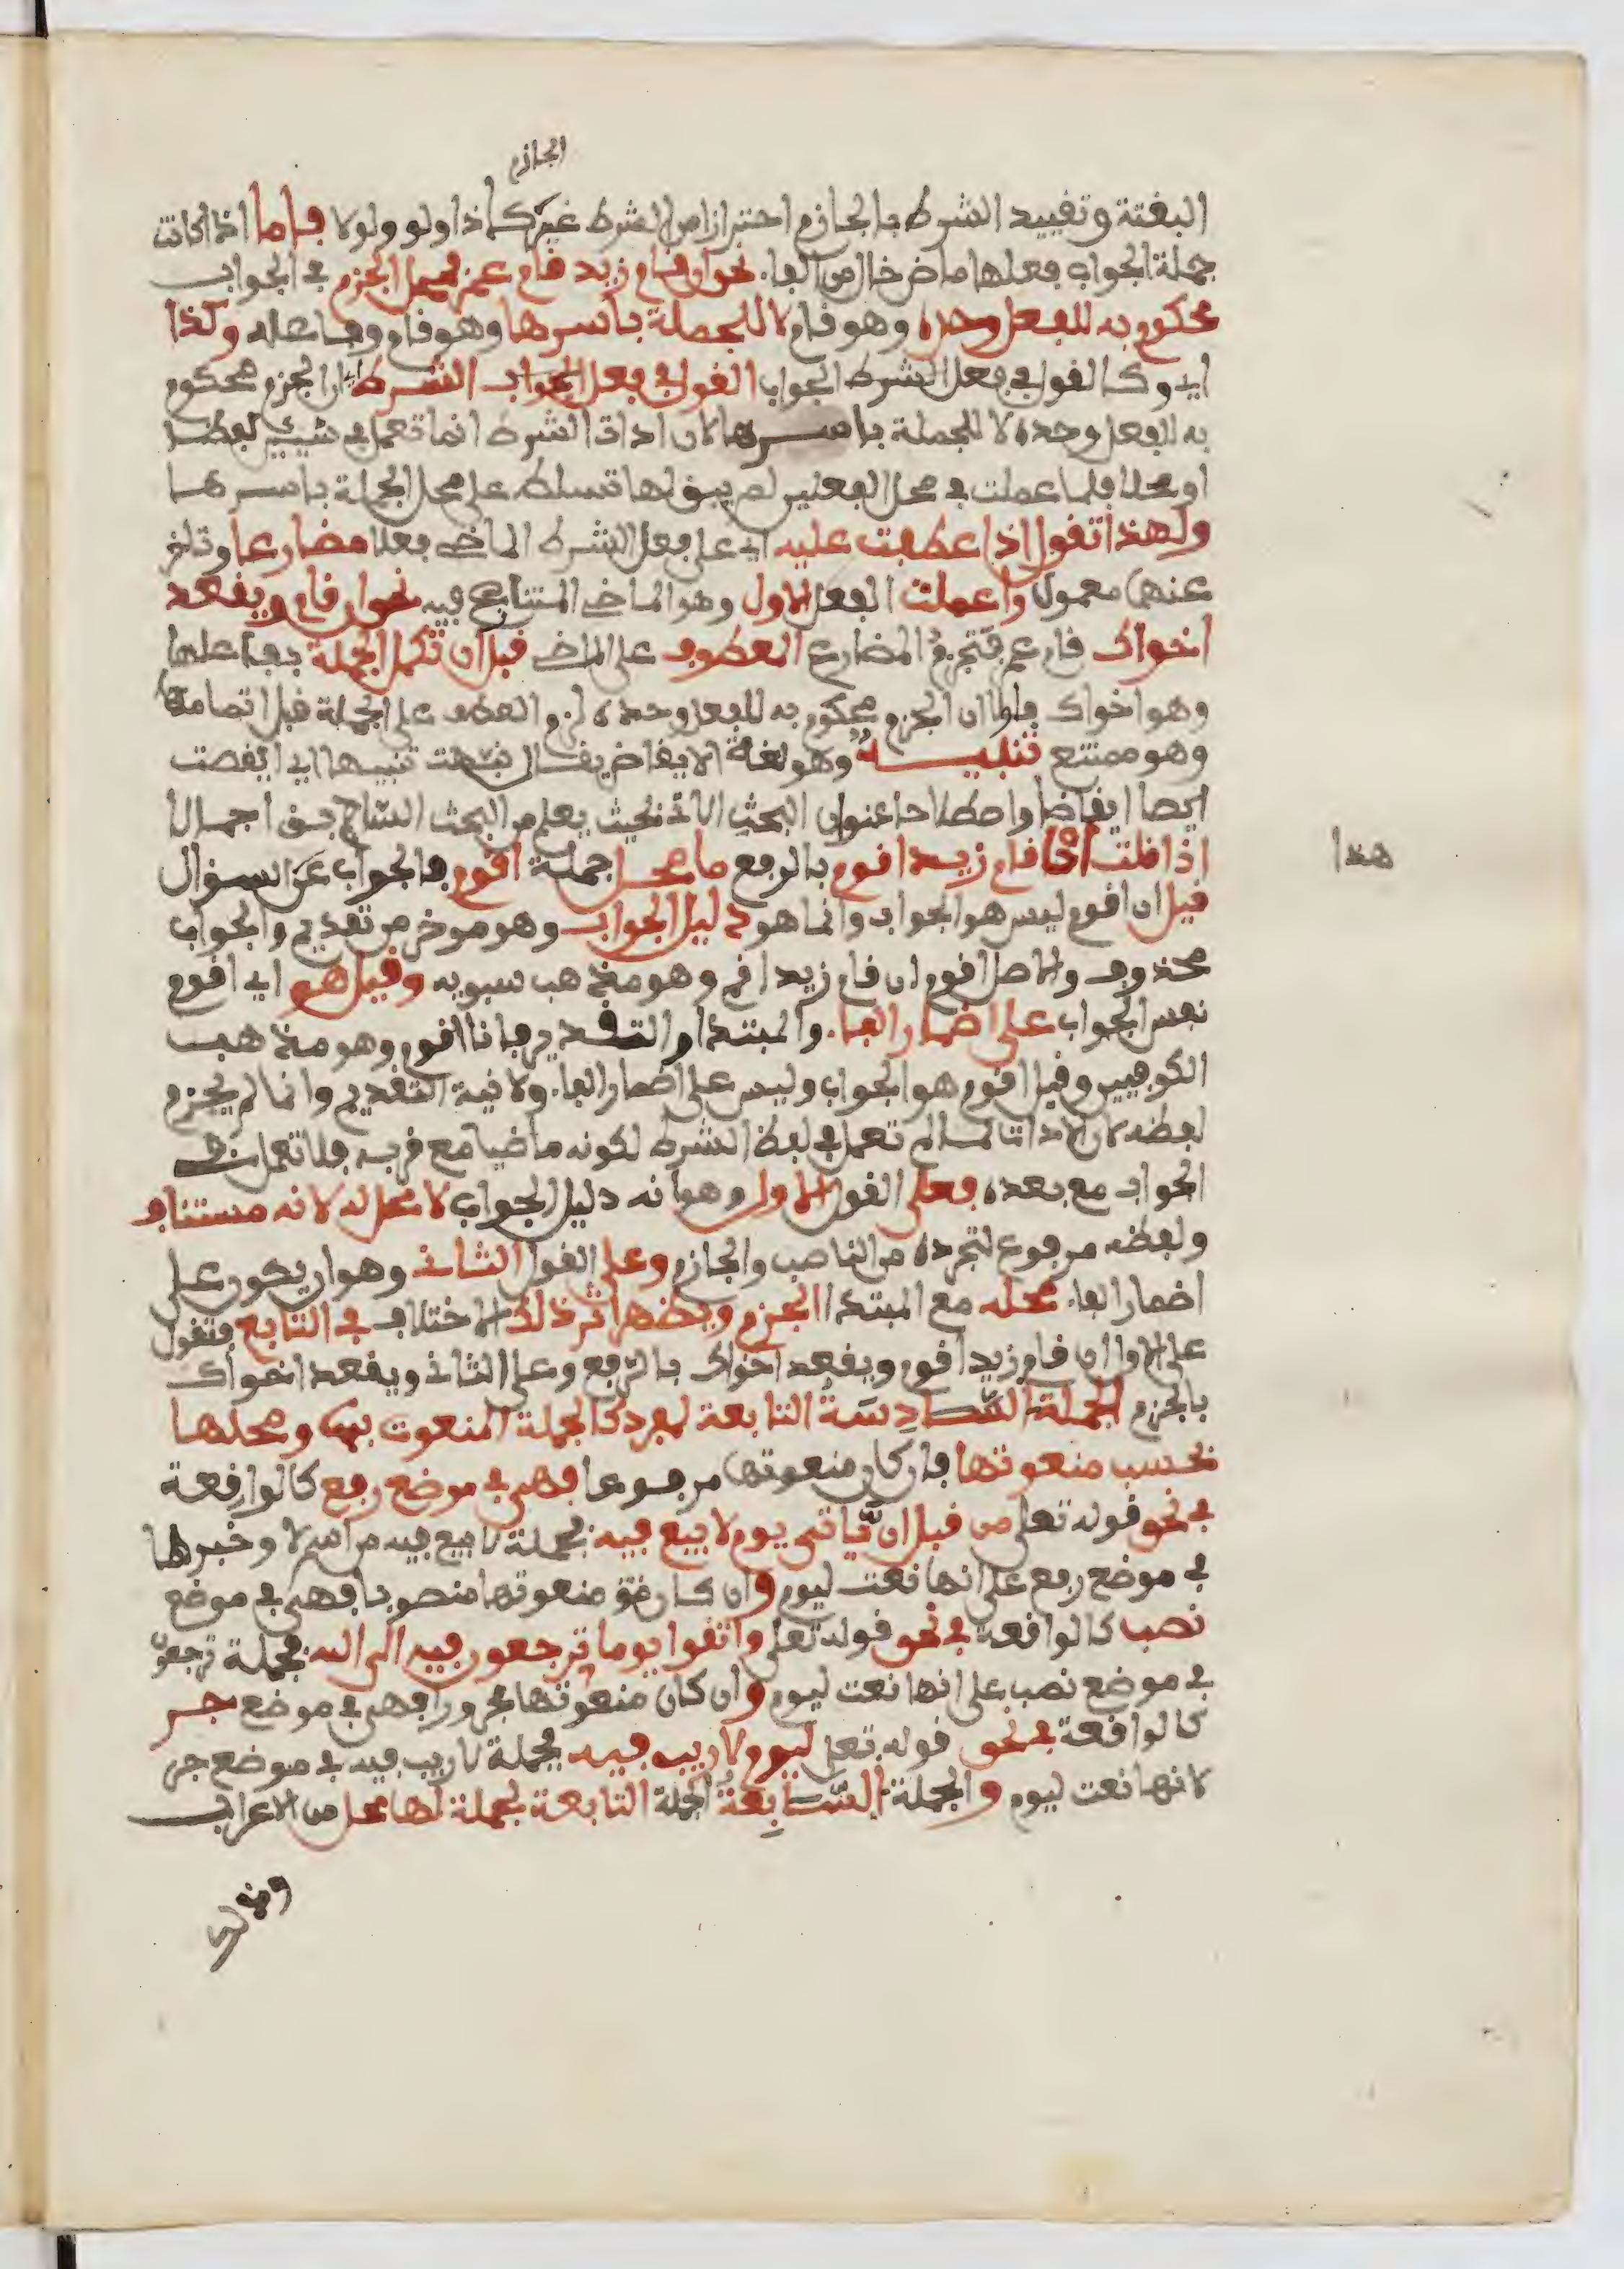 الجازم
البغتة وتقييد الشرط بالجازم احترازا من الشرط غير كاذا ولو ولولا فاما اذا كانت
جملة الجواب فعلها ماض خال من الفاء نحو ان قام زيد قام عمرو فمحل الجزم في الجواب
محكوم به للفعل وحده وهو قام لا للجملة باسرها وهو قام وفاعله وكذا
اي وكالقول في فعل الشرط الجواب القول في فعل الجواب الشرط ان الجزم محكوم
به للفعل وحده لا للجملة باسرها لان اداة الشرط انما تعمل في شييين لفظا
او محلا فلما عملت في محل الفعلين لم يبق لها تسلط على محل الجملة باسرها
ولهذا تقول اذا عطفت عليه اي على فعل الشرط الماضي فعلا مضارعا وتاخر
عنهما معمول واعملت الفعل الاول وهو الماضي المتنازع فيه نحو ان قام ويقعد
اخواك قام عمرو فتجزم المضارع المعطوف على الماضي قبل ان تكمل الجملة بفاعلها
وهو اخواك فلولا ان الجزم محكوم به للفعل وحده لزم العطف على الجملة قبل اتمامها
وهو ممتنع تنبيه وهو لغة الايقاظ يقال نبهت تنبيها اي ايقظت
ايقاظا واصطلاحا عنوان البحث الاتي بحيث يعلم من البحث السابق اجمالا
اذا قلت ان قام زيد اقوم بالرفع ما محل جملة اقوم فالجواب عن السؤال
هذا
قيل ان اقوم ليس هو الجواب وانما هو دليل الجواب وهو موخر من تقديم والجواب
محذوف والاصل اقوم ان قام زيد اقم وهو مذهب سيبويه وقيل هو اي اقوم
نفس الجواب على اضمار الفاء والمبتدا والتقدير فانا اقوم وهو مذهب
الكوفيين وقيل اقوم هو الجواب وليس على اضمار الفاء ولا نية التقديم وانما لم يجزم
لفظه لان الاداة لما لم تعمل في لفظ الشرط لكونه ماضيا مع قربه فلا تعمل في
الجواب مع بعده فعلى القول الاول وهو انه دليل الجواب لا محل له لانه مستانف
ولفظه مرفوع لتجرده من الناصب والجازم وعلى القول الثاني وهو ان يكون على
اضمار الفاء محله مع المبتدا الجزم ويظهر اثر ذلك الاختلاف في التابع فتقول
على الاول ان قام زيد اقوم ويقعد اخواك بالرفع وعلى الثاني ويقعد اخواك
بالجزم الجملة السادسة التابعة لمفرد كالجملة المنعوت بها ومحلها
بحسب منعوتها فان كان منعوتها مرفوعا فهي في موضع رفع كالواقعة
في نحو قوله تعلى من قبل ان ياتي يوم لا بيع فيه فجملة لا بيع فيه من اسم لا وخبرها
في موضع رفع على انها نعت ليوم وان كان منعوتها منصوبا فهي في موضع
نصب كالواقعة في نحو قوله تعلى واتقوا يوما ترجعون فيه الى الله فجملة ترجعون
في موضع نصب على انها نعت ليوم وان كان منعوتها مجرورا فهي في موضع جر
كالواقعة في نحو قوله تعلى ليوم لا ريب فيه فجملة لا ريب فيه في موضع جر
لانها نعت ليوم والجملة السابعة الجملة التابعة لجملة لها محل من الاعراب